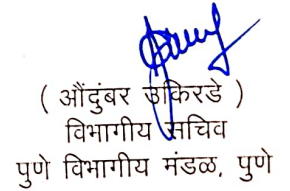 ( औंदुंबर उकिरडे )
विभागीय सचिव
पुणे विभागीय मंडळ, पुणे